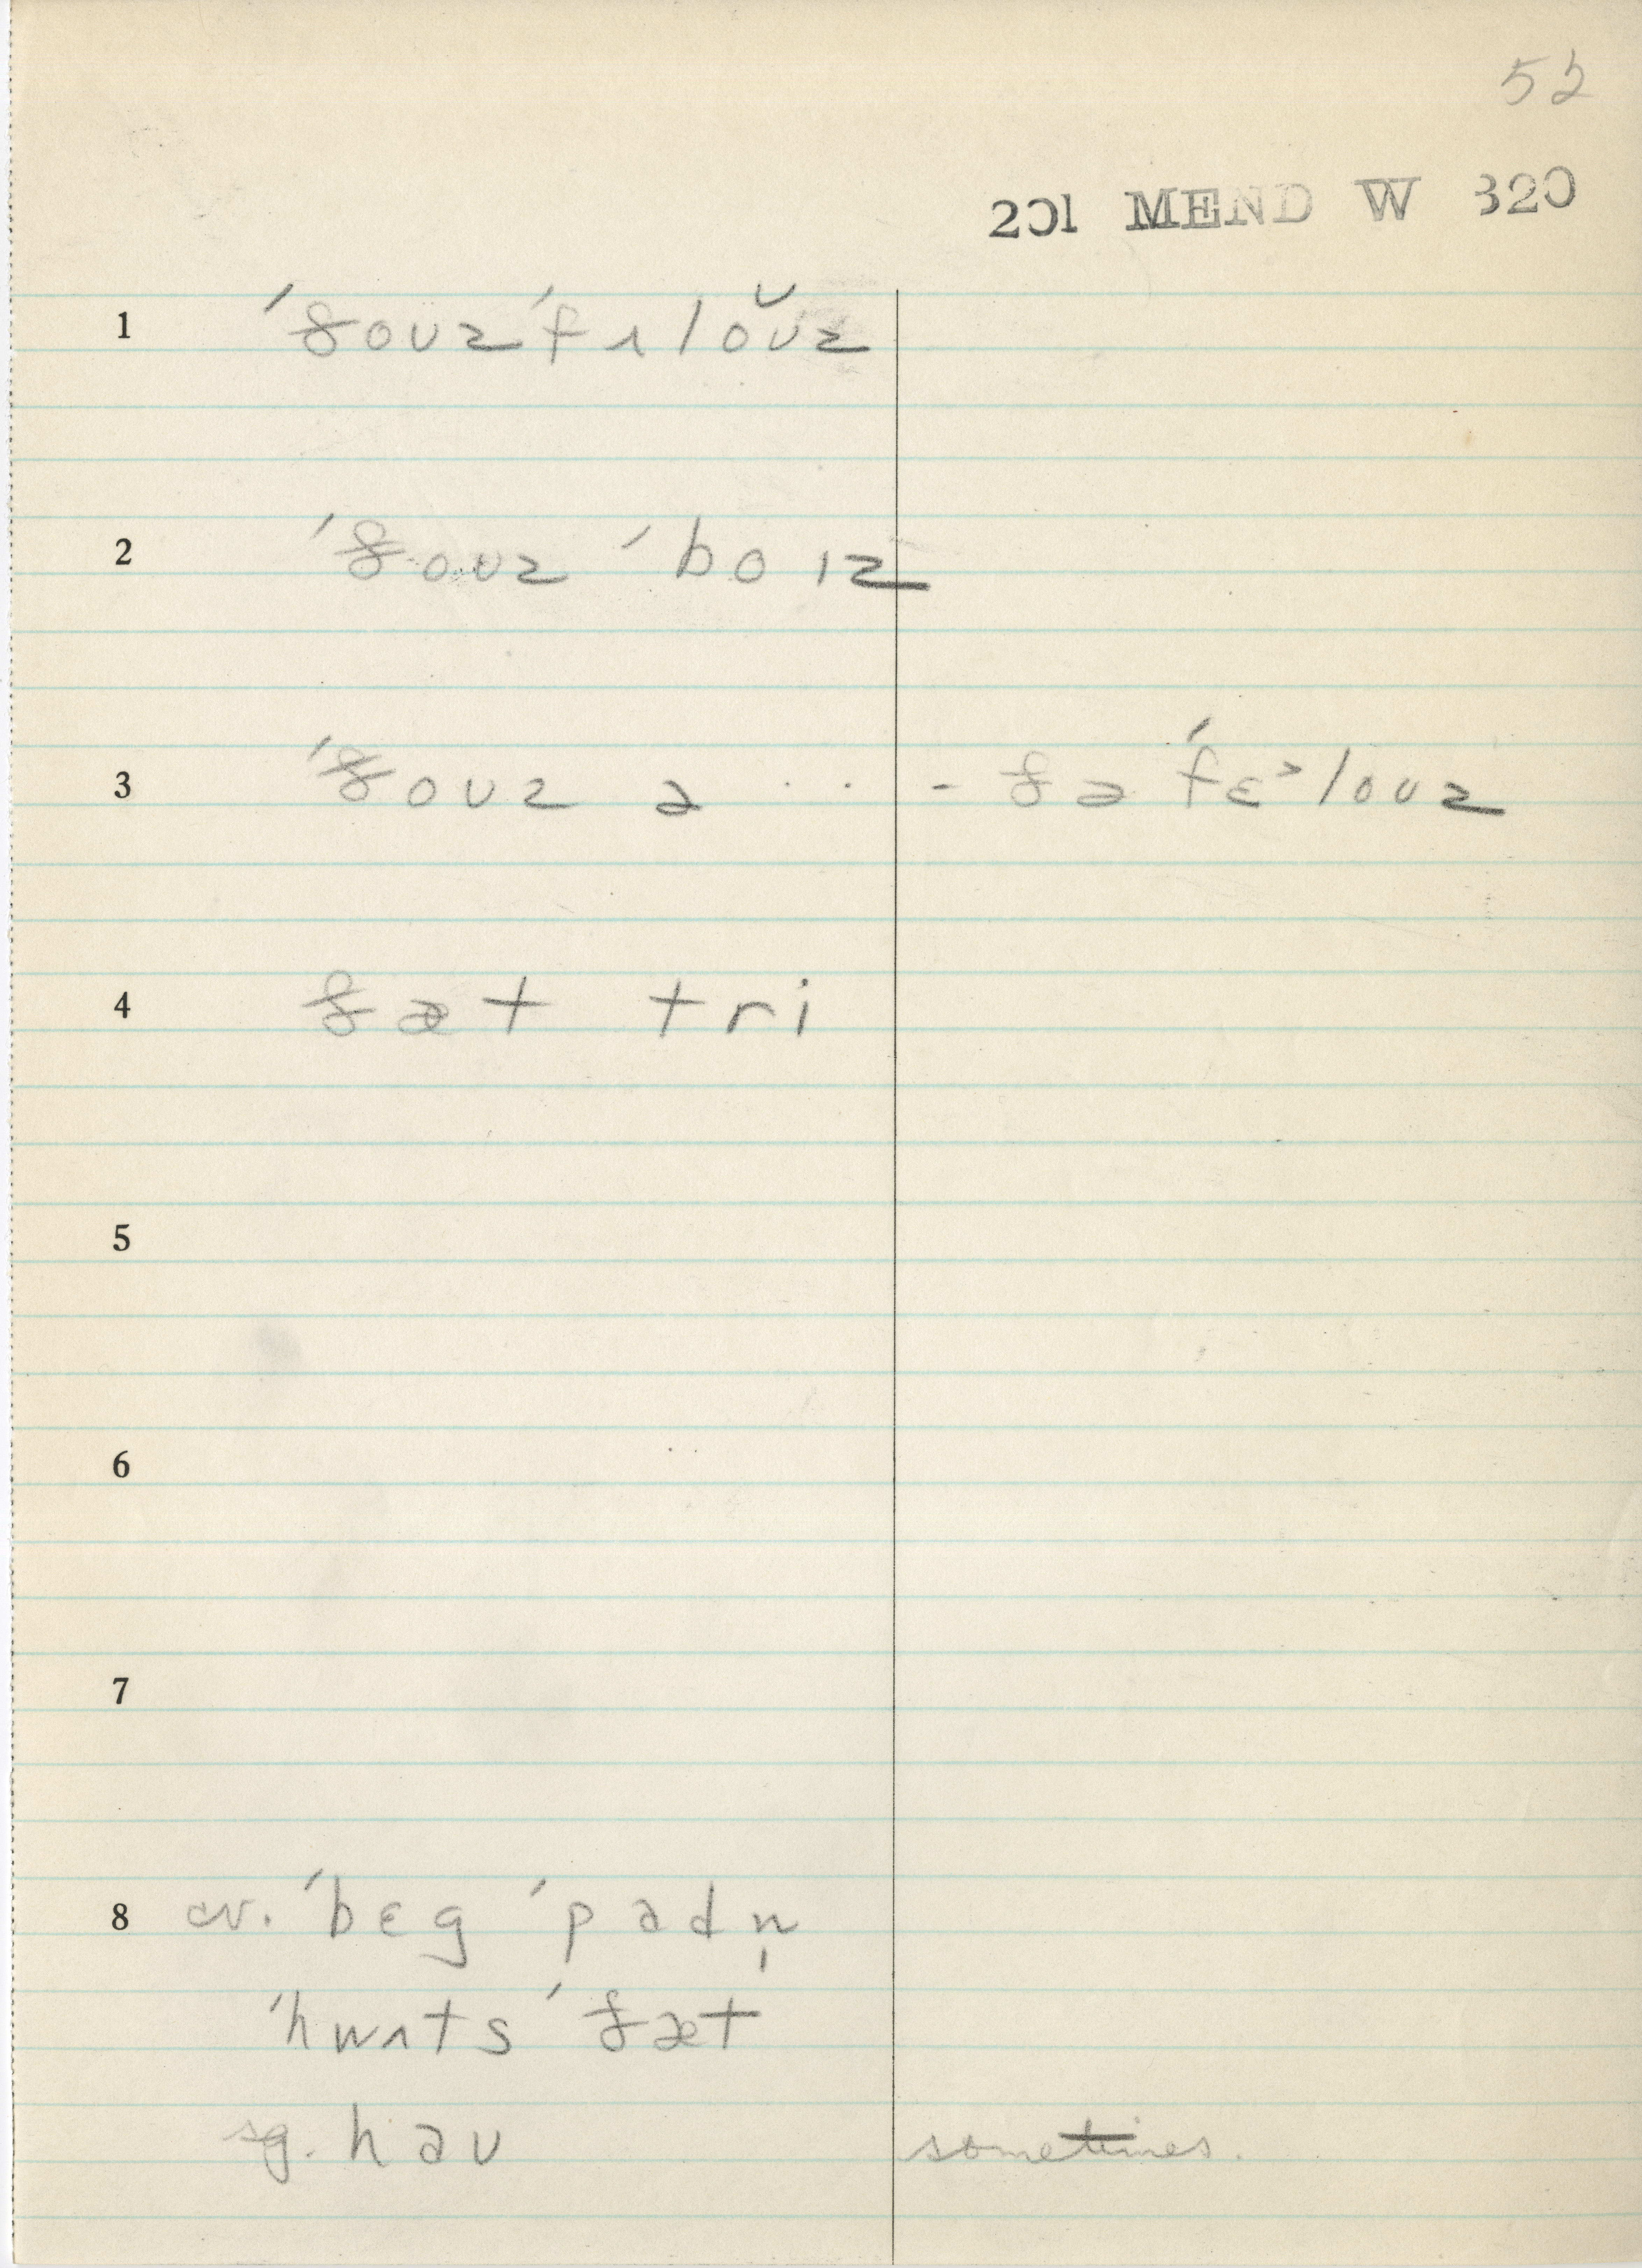 52
201 MEND W 320
1 ´ðoʊz ´fɪlo̮ʊz
2 ´ðoʊz ´boɪz
3 ´ðoʊz ə . . - ðə ´fɛ˃loʊz
4 ðæt tri
5
6
7
8 cv. ´bɛg ´padn̩
´hwɪts ´ðæt
sg. haʊ sometimes.